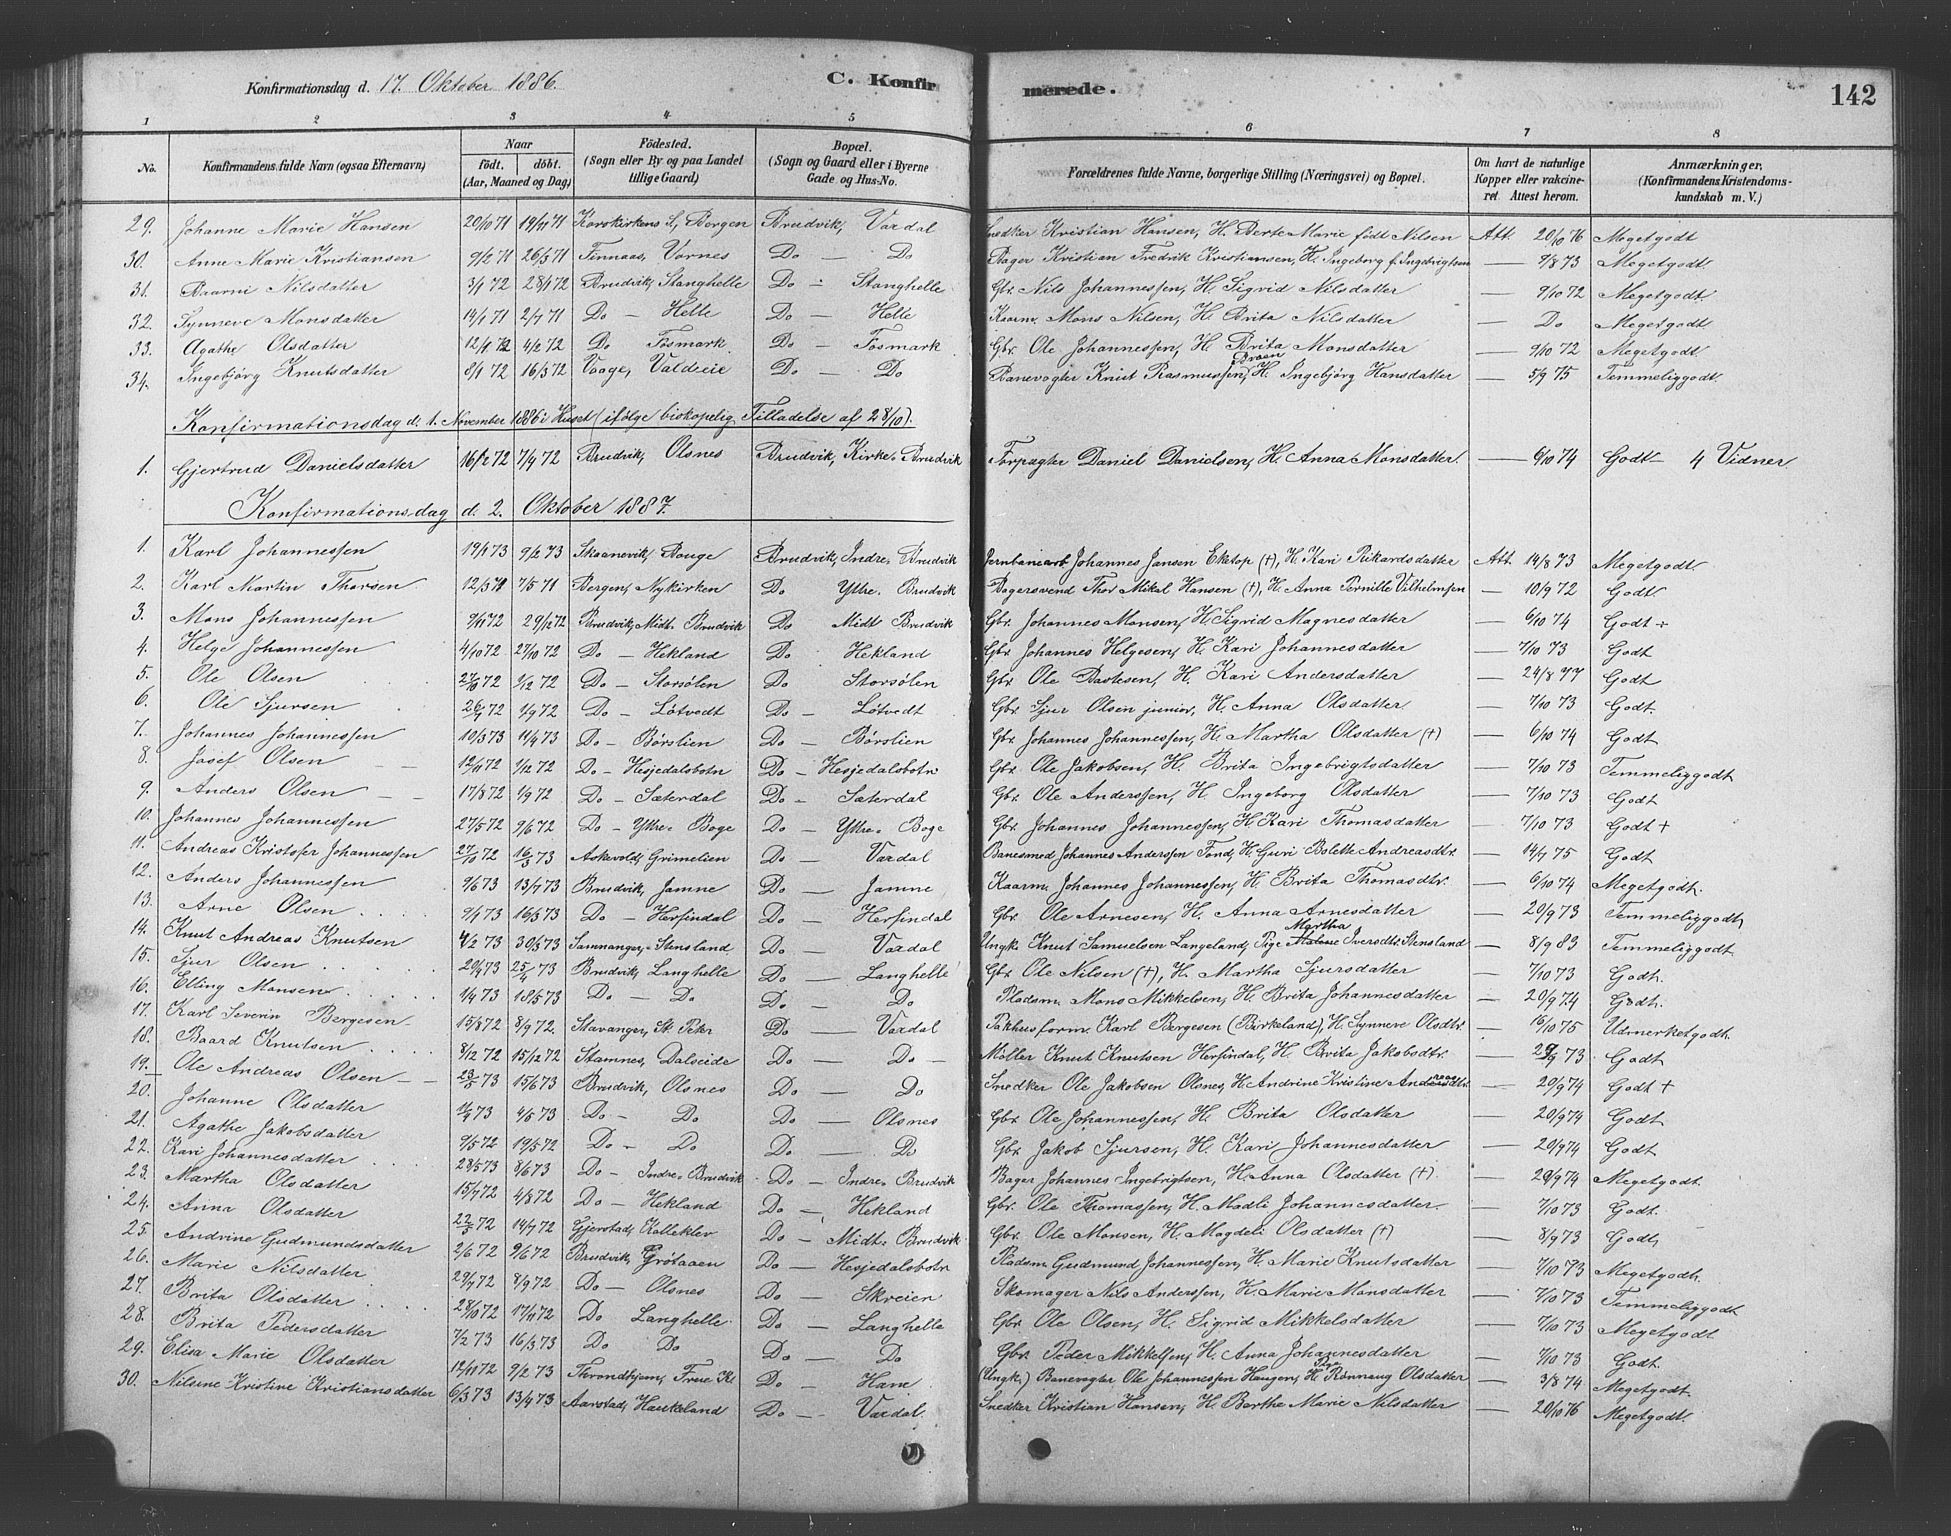 Konfirmationsdag d. 17. Oktober 1886. C. Konfirmerede. 142
1 2 3 4 5 6 7 8
No. Konfirmandens fulde Navn (ogsaa Efternavn) Naar født. døbt. (Aar, Maaned og Dag) Fødested. (Sogn eller By og paa Landet tillige Gaard) Bopæl. (Sogn og Gaard eller i Byerne Gade og Hus-No. Forældrenes fulde Navne, borgerlige Stilling (Næringsvei) og Bopæl. Om havt de naturlige Kopper eller vakcineret. Attest herom. Anmærkninger, (Konfirmandens Kristendomskundskab m. V.)
29. Johanne Marie Hansen 20/10 71 19/11 71 Korskirkens S., Bergen Brudvik, Vaxdal Snedker Kristian Hansen, H. Berte Marie født Nilsen Att. 20/10 76 Megetgodt
30. Anne Marie Kristiansen 9/2 71 26/3 71 Finnaas, Vornes Do — Do Bager Kristian Fredrik Kristiansen, H. Ingeborg f. Ingebrigtsen — 9/8 73 Megetgodt.
31. Baarni Nilsdatter 3/1 72 28/1 72 Brudvik, Stanghelle Do - Stanghelle Gbr. Nils Johannessen, H. Sigrid Nilsdatter — 9/10 72 Megetgodt.
32. Synneve Monsdatter 14/1 71 2/7 71 Do — Helle Do - Helle Kaarm. Mons Nilsen, H. Brita Nilsdatter — Do Megetgodt
33. Agathe Olsdatter 12/1 72 4/2 72 Do Fosmark Do — Fosmark Gbr. Ole Johannessen, H. Brita Monsdatter — 9/10 72 Megetgodt.
34. Ingebjørg Knutsdatter 8/1 72 16/3 72 Vaage, Valdeie Do — Do Banevogter Knut Rasmussen, H. Ingebjørg Hansdatter — 5/9 75 Temmeliggodt.
Konfirmationsdag d. 1. November 1886 i Huset (ifølge biskopelig Tilladelse af 28/10).
1. Gjertrud Danielsdatter 16/2 72 7/4 72 Brudvik, Olsnes Brudvik, Kirke-Brudvik Forpagter Daniel Danielsen, H. Anna Monsdatter. — 6/10 74 Godt - 4 Vidner
Konfirmationsdag d. 2. Oktober 1887.
1. Karl Johannessen 19/1 73 9/2 73 Skaanevik, Bouge Brudvik, Indre Brudvik Jernbanearb Johannes Jansen Ektop (†), H. Kari Rikardsdatter Att. 14/8 73 Megetgodt
2. Karl Martin Thorsen 12/3 71 7/5 71 Bergen, Nykirken Do Yttre Brudvik Bagersvend Thor Mikal Hansen (†), H. Anna Pernille Vilhelmsen — 10/9 72 Godt
3. Mons Johannessen 9/11 72 29/12 72 Brudvik, Midt-Brudvik Do Midt Brudvik Gbr. Johannes Monsen, H. Sigrid Magnesdatter — 6/10 74 Godt +
4. Helge Johannessen 4/10 72 27/10 72 Do — Hekland Do Hekland Gbr. Johannes Helgesen, H. Kari Johannesdatter — 7/10 73 Godt
5. Ole Olsen 1/12 72 Do — Storsølen Do Storsølen Gbr. Ole Bastesen, H. Kari Andersdatter — 24/8 77 Godt
6. Ole Sjursen 1/9 72 Do — Løtvedt Do — Løtvedt Gbr. Sjur Olsen junior, H. Anna Olsdatter. — 7/10 73 Godt.
7. Johannes Johannessen 10/3 73 11/4 73 Do - Børslien Do — Børslien Gbr. Johannes Johannessen, H. Martha Olsdatter (†) — 6/10 74 Godt
8. Josef Olsen 12/11 72 1/12 72 Do - Hesjedalsbotn Do — Hesjedalsbotn Gbr. Ole Jakobsen, H. Brita Ingebrigtsdatter — 7/10 73 Temmeliggodt
9. Anders Olsen 17/8 72 1/9 72 Do - Sæterdal Do — Sæterdal Gbr. Ole Anderssen, H. Ingeborg Olsdatter — 7/10 73 Godt
10. Johannes Johannessen 27/5 72 9/6 72 Do — Yttre Boge Do — Yttre Boge Gbr. Johannes Johannessen, H. Kari Thomasdatter — 7/10 73 Godt +
11. Andreas Kristofer Johannessen 27/10 72 16/3 73 Askevold, Grimelien Do — Vaxdal Banesmed Johannes Anderssen Tond, H. Guri Bolette Andreasdtr. — 14/7 75 Godt
12. Anders Johannessen 9/6 73 13/7 73 Brudvik, Jamne Do — Jamne Kaarm. Johannes Johannessen, H. Brita Thomasdtr. — 6/10 74 Megetgodt.
13. Arne Olsen 9/4 73 16/5 73 Do — Herfindal Do — Herfindal Gbr. Ole Arnesen, H. Anna Arnesdatter — 20/9 73 Temmeliggodt
14. Knut Andreas Knutsen 4/2 73 30/3 73 Samnanger, Stensland Do — Vaxdal Ungk. Knut Samuelsen Langeland, Pige Martha Iversdtr. Stensland — 8/9 83 Temmeliggodt
15. Sjur Olsen 29/4 73 25/4 73 Brudvik, Langhelle Do — Langhelle Gbr. Ole Nilsen (†), H. Martha Sjursdatter — 7/10 73 Godt.
16. Elling Monsen 1/4 73 18/5 73 Do — Do Do — Do Pladsm. Mons Mikkelsen, H. Brita Johannesdatter — 20/9 74 Godt.
17. Karl Severin Bergesen 15/8 72 8/9 72 Stavanger, St. Petri Do — Vaxdal Pakhusform. Karl Bergesen (Birkeland), H. Synneve Olsdtr. — 16/10 75 Udmerketgodt.
18. Baard Knutsen 8/12 72 15/12 72 Stamnes, Dalseide Do — Do — Møller Knut Knutsen Herfindal, H. Brita Jakobsdtr. — 29/9 73 Godt
19. Ole Andreas Olsen 23/5 73 15/6 73 Brudvik, Olsnes Do — Do Snedker Ole Jakobsen Olsnes, H. Andrine Kristine Andreasdtr — 20/9 74 Godt +
20. Johanne Olsdatter 1/4 73 4/5 73 Do — Do Do — Olsnes Gbr. Ole Johannessen, H. Brita Olsdatter — 20/9 74 Godt
21. Agathe Jakobsdatter 9/5 72 19/5 72 Do - Do Do — Do Gbr. Jakob Sjursen, H. Kari Johannesdatter — 20/9 74 Godt
22. Kari Johannesdatter 28/5 73 8/6 73 Do - Indre-Brudvik Do — Indre Brudvik Bager Johannes Ingebrigtsen, H. Anna Olsdatter (†) — 20/9 74 Megetgodt.
23. Martha Olsdatter 15/7 72 4/8 72 Do — Hekland Do — Hekland Gbr. Ole Thomassen, H. Madli Johannesdatter. — 7/10 73 Godt.
24. Anna Olsdatter 22/5 72 14/7 72 Gjerstad, Kalleklev Do — Midt-Brudvik Gbr. Ole Monsen, H. Magdeli Olsdatter (†) — 8/9 73 Godt
25. Andrine Gudmundsdatter 2/6 72 9/6 72 Brudvik, Grøtaaen Do — Hesjedalsbotn Pladsm. Gudmund Johannessen, H. Marie Knutsdatter — 7/10 73 Megetgodt.
26. Marie Nilsdatter 29/7 72 8/9 72 Do — Olsnes Do — Skreien Skomager Nils Anderssen, H. Marie Monsdatter — 7/10 73 Temmeliggodt
27. Brita Olsdatter 28/10 72 17/11 72 Do Langhelle Do — Langhelle Gbr. Ole Olsen, H. Sigrid Mikkelsdatter — 7/10 73 Megetgodt
28. Brita Pedersdatter 7/2 73 16/3 73 Do Do Do — Do Gbr. Peder Mikkelsen, H. Anna Johannesdatter — 7/10 73 Godt.
29. Elisa Marie Olsdatter 12/11 72 9/2 73 Throndhjem, Frue K. Do — Hane (Ungk.) Banevogter Ole Johannessen Haugen, Pige Rønnaug Olsdatter — 3/8 74 Megetgodt.
30. Nilsine Kristine Kristiansdatter 6/3 73 13/4 73 Aarstad, Haukeland Do — Vaxdal. Snedker Kristian Hansen, H. Berthe Marie Nilsdatter — 20/10 76 Megetgodt.